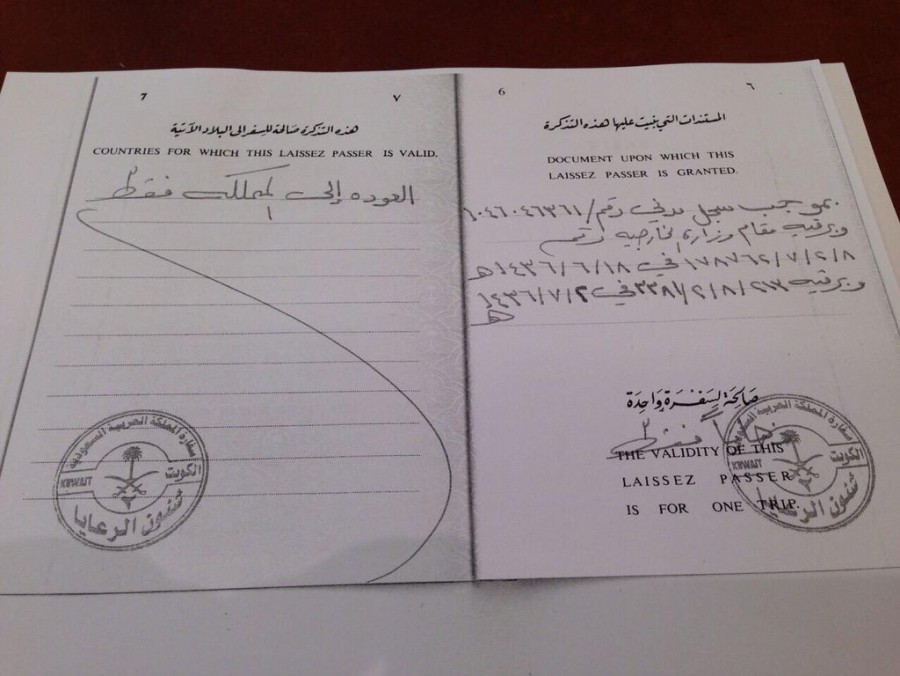 7
٧
هذه التذكرة صالحة للسفر إلى البلاد الآتية
COUNTRIES FOR WHICH THIS LAISSEZ PASSER IS VALID.
العوده إلى المملكه فقط
سفارة المملكة العربية السعودية
الكويت
KUWAIT
شئون الرعايا
6
٦
المستندات التي بنيت عليها هذه التذكرة
DOCUMENT UPON WHICH THIS
LAISSEZ PASSER IS GRANTED.
بموجب سجل مدني رقم/
وبرقيه مقام وزارة الخارجيه رقم
١٧٨٧٦٢/٧/٢/٨ في ١٤٣٦/٦/١٨هـ
وبرقيه في ١٤٣٦/٧/٢
هـ
صالحة لسفرة واحدة
فقط
THE VALIDITY OF THIS
LAISSEZ PASSER
IS FOR ONE TRIP.
سفارة المملكة العربية السعودية
الكويت
KUWAIT
شئون الرعايا